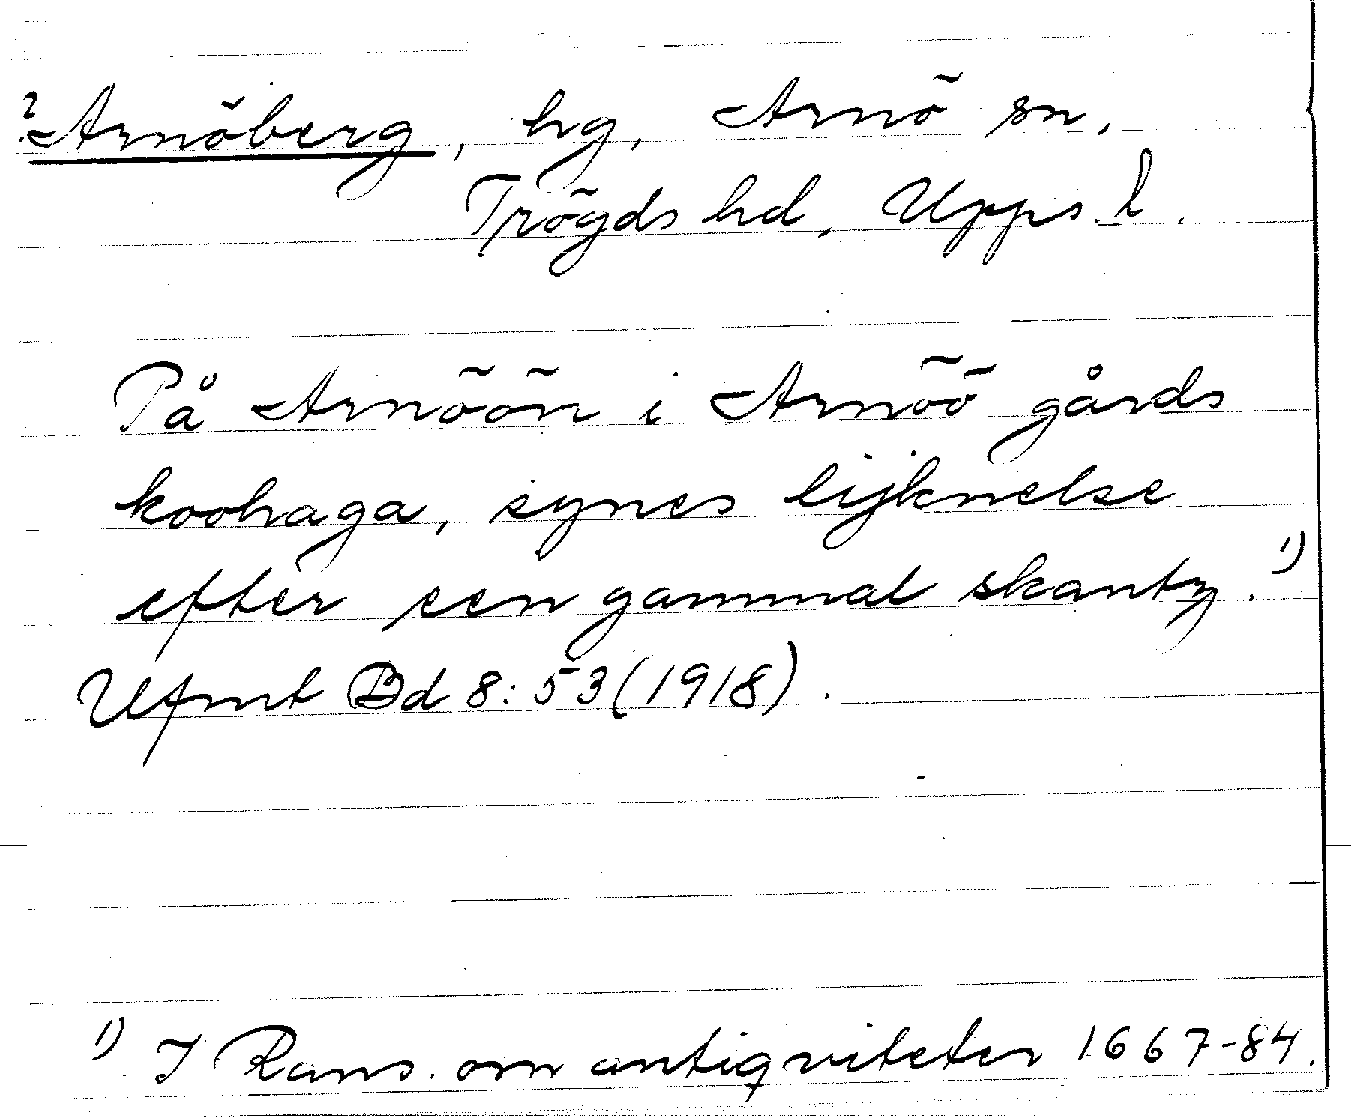 ? Arnöberg, hg, Arnö sn,
Trögds hd, Upps. l.
På Arnöön i Arnöö gårds
koohaga, synes lijknelse
efter een gammal skantz. 1)
Ufmt Bd 8:53 (1918).
1) I Rans. om antiqviteter 1667-84.